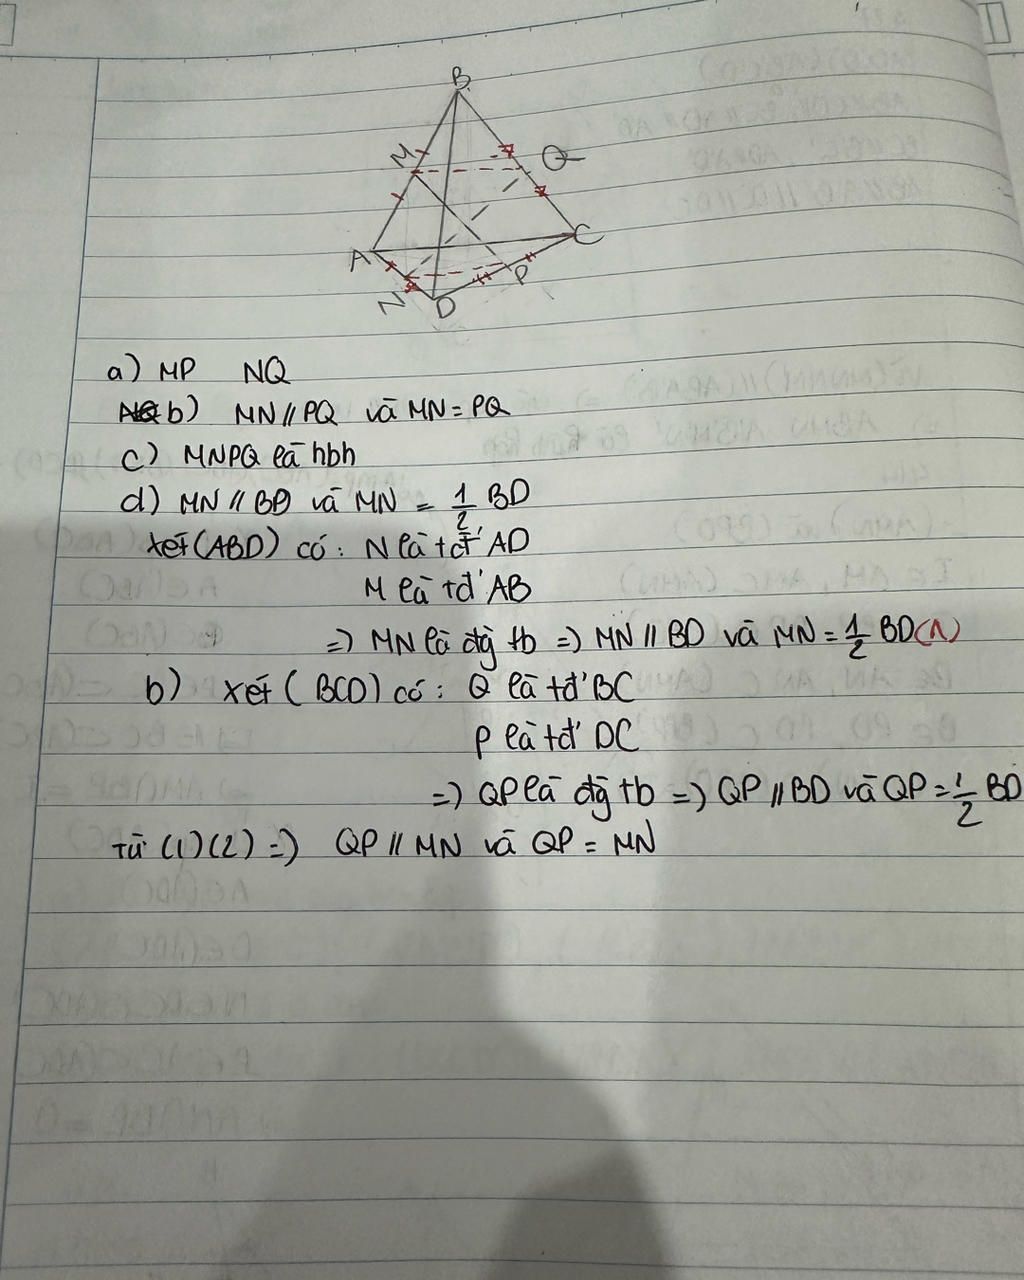 B
M
Q
A
C
N
D
P
a) MP NQ
b) MN // PQ và MN = PQ
c) MNPQ là hbh
d) MN // BD và MN = 1/2 BD
xét (ABD) có: N là tđ' AD
M là tđ' AB
=) MN là đg tb =) MN // BD và MN = 1/2 BD (1)
b) xét (BCD) có: Q là tđ' BC
P là tđ' DC
=) QP là đg tb =) QP // BD và QP = 1/2 BD
từ (1) (2) =) QP // MN và QP = MN